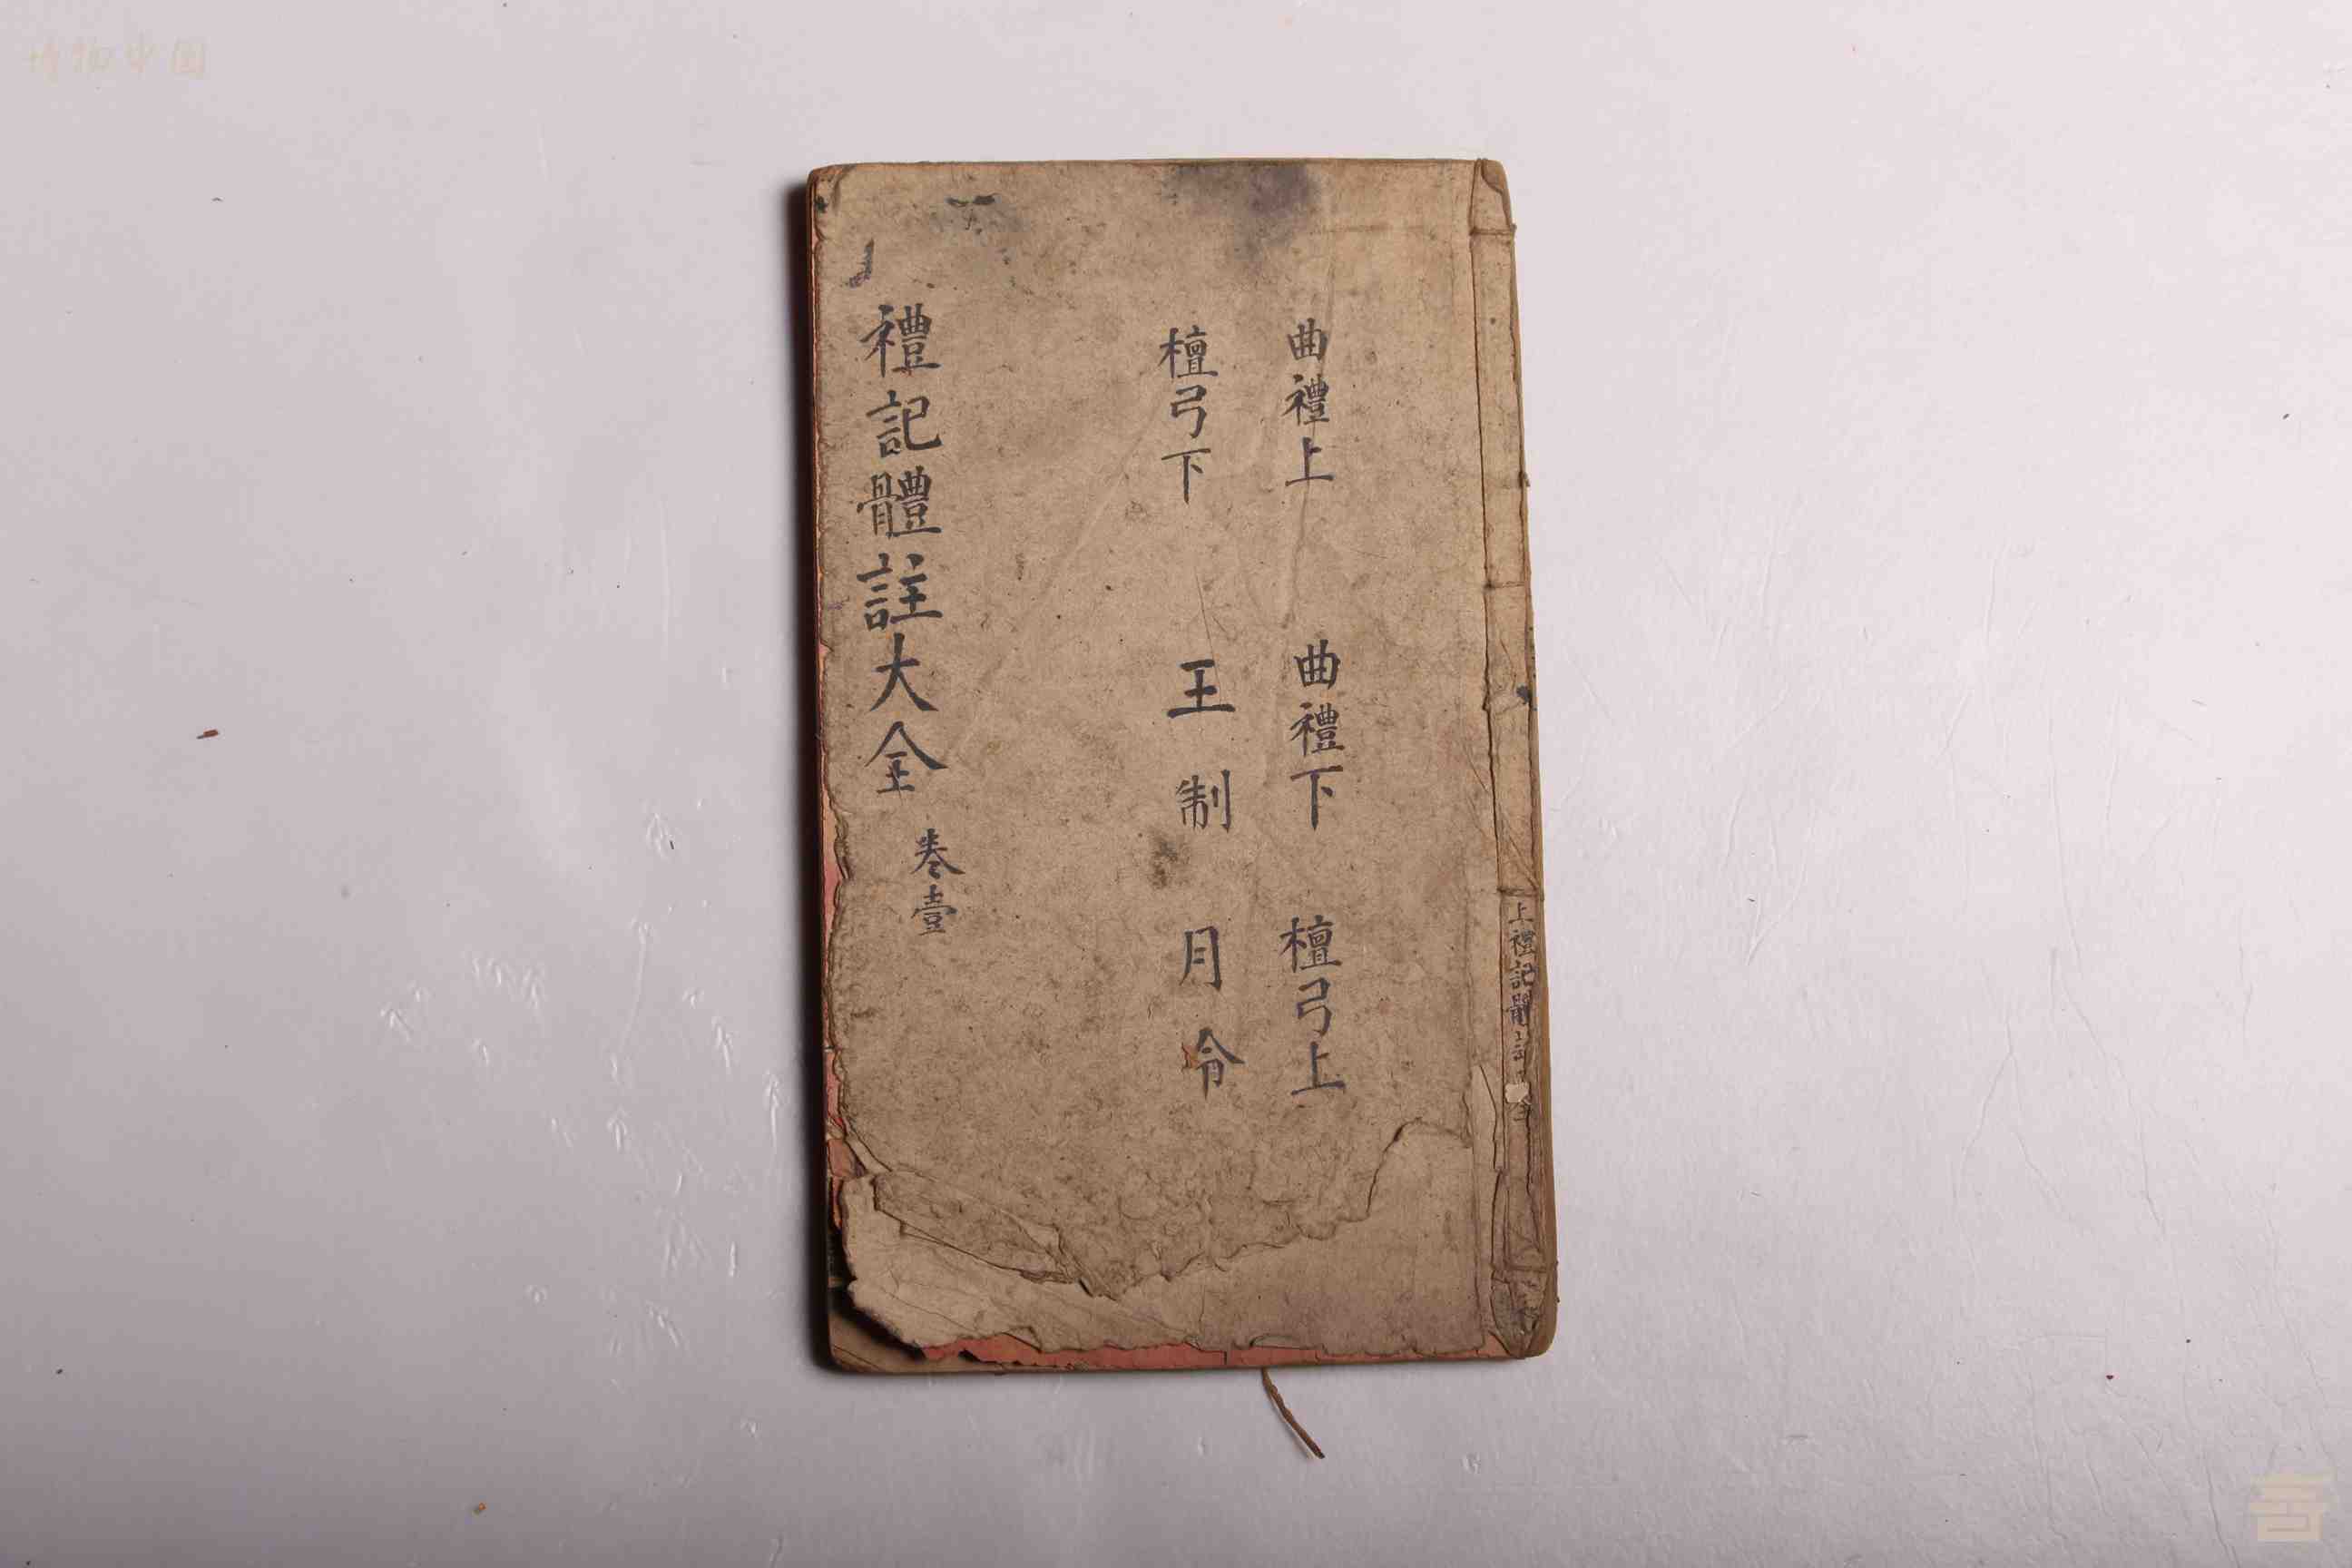 曲禮上 曲禮下 檀弓上
檀弓下 王制 月令
禮記體註大全 卷壹
上禮記體註 全